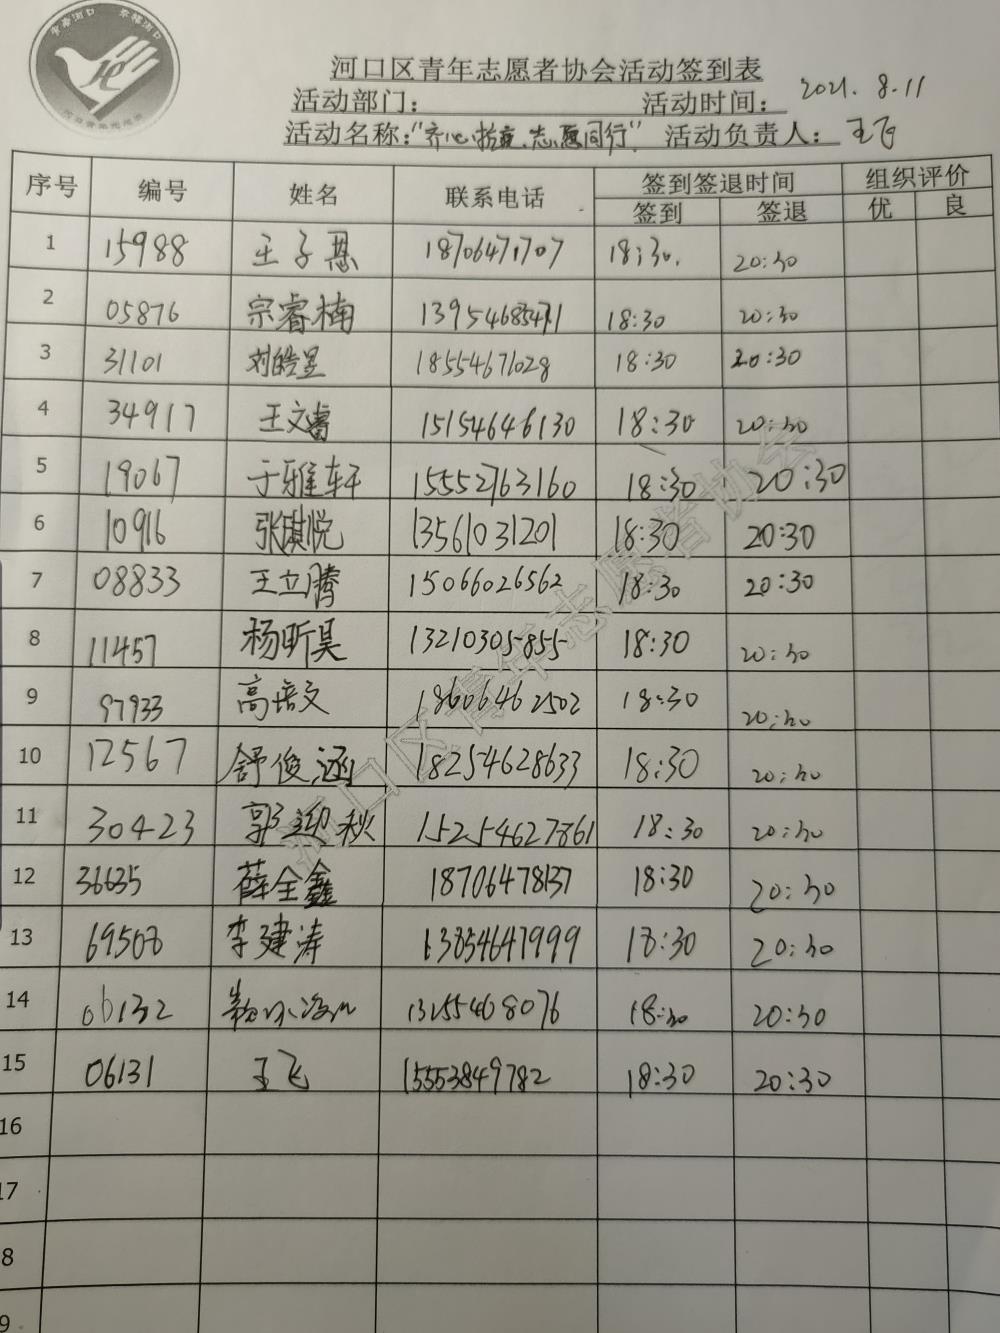 河口区青年志愿者协会活动签到表
活动部门： 活动时间： 2021.8.11
活动名称："齐心抗疫,志愿同行" 活动负责人：王飞
序号 编号 姓名 联系电话 签到签退时间 组织评价
签到 签退 优 良
1 15988 王子恩 18706471707 18:30. 20:30
2 05876 宗睿楠 13954685471 18:30 20:30
3 31101 刘皓昱 18554671028 18:30 20:30
4 34917 王文睿 15154646130 18:30 20:30
5 19067 于雅轩 15552763160 18:30 20:30
6 10916 张淇悦 13561031201 18:30 20:30
7 08833 王立腾 15066026562 18:30 20:30
8 11457 杨昕昊 13210305855 18:30 20:30
9 97933 高培文 18606462502 18:30 20:30
10 12567 舒俊涵 18254628633 18:30 20:30
11 30423 郭迎秋 15254627861 18:30 20:30
12 36635 薛全鑫 18706478137 18:30 20:30
13 69508 李建涛 13854647999 18:30 20:30
14 06132 13255468076 18:30 20:30
15 06131 王飞 15553849782 18:30 20:30
16
17
8
9
河口区青年志愿者协会